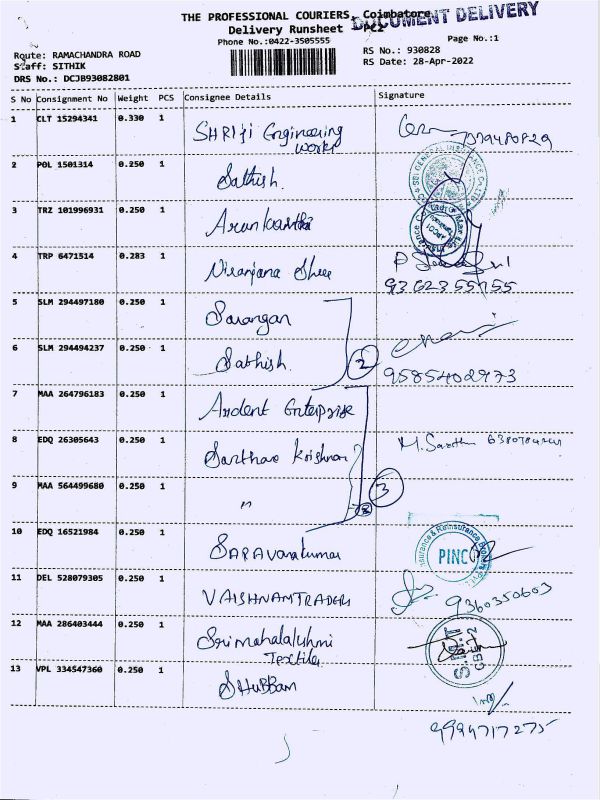 THE PROFESSIONAL COURIERS, Coimbatore
DOCUMENT DELIVERY
Delivery Runsheet PC2
Phone No.:0422-3505555
Page No.:1
Route: RAMACHANDRA ROAD
RS No.: 930828
Staff: SITHIK
RS Date: 28-Apr-2022
DRS No.: DCJB93082801
S No Consignment No Weight PCS Consignee Details Signature
1 CLT 15294341 0.330 1 SHRIJI Engineering
works
2 POL 1501314 0.250 1 Sathish.
3 TRZ 101996931 0.250 1 Arunkarthi
4 TRP 6471514 0.283 1 Niranjana Shree
9362355155
5 SLM 294497180 0.250 1 Sarangan
6 SLM 294494237 0.250 1 Sathish. 2
9585402973
7 MAA 264796183 0.250 1 Ardent Enterprise
8 EDQ 26305643 0.250 1 Krishnan
9 MAA 564499680 0.250 1 " 3
10 EDQ 16521984 0.250 1 SARAVanakumar PINC
11 DEL 528079305 0.250 1 VAISHNAMTRADERS 9360350603
12 MAA 286403444 0.250 1 Srimahalakshmi
Textiles
13 VPL 334547360 0.250 1 SHUBBAM
9994717275